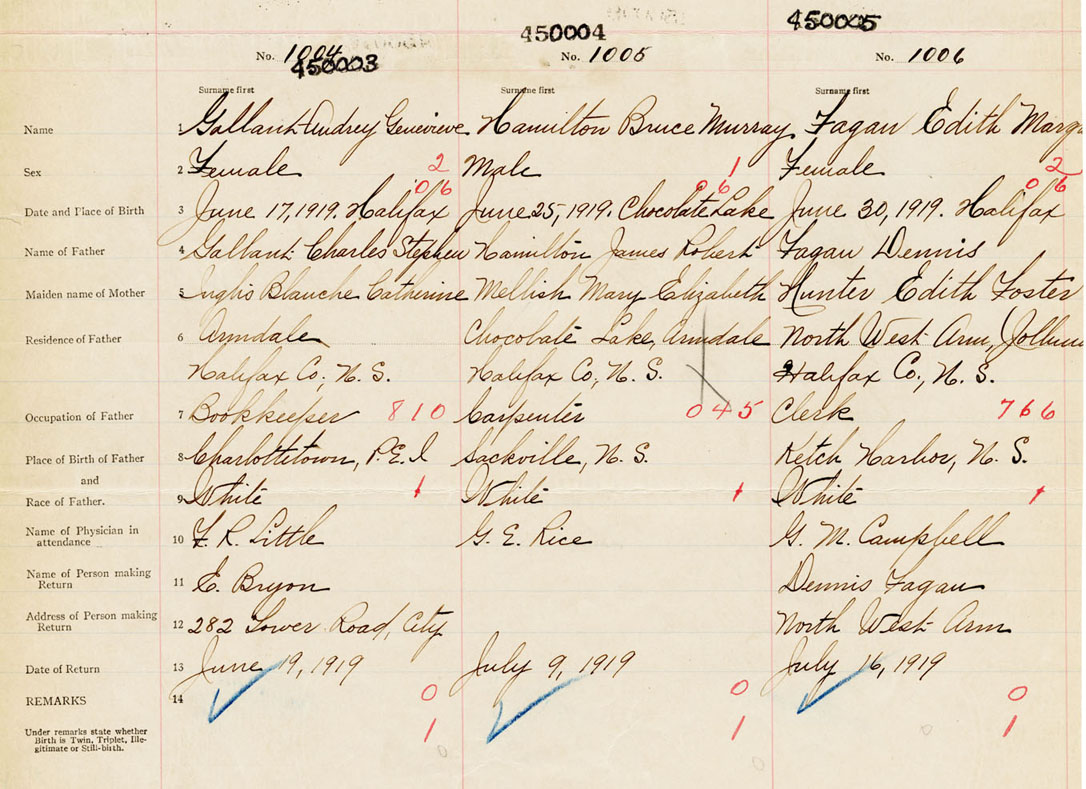 450003 450004 450005
No. 1004 No. 1005 No. 1006
Surname first Surname first Surname first
Name 1 Gallant Audrey Genevieve Hamilton Bruce Murray Fagan Edith
Sex 2 Female 2 Male 1 Female 2
06 06 06
Date and Place of Birth 3 June 17, 1919. Halifax June 25, 1919. Chocolate Lake June 30, 1919. Halifax
Name of Father 4 Gallant Charles Stephen Hamilton James Robert Fagan Dennis
Maiden name of Mother 5 Inglis Blanche Catherine Mellish Mary Elizabeth Hunter Edith Foster
Residence of Father 6 Armdale Chocolate Lake, Armdale North West Arm,
Halifax Co., N. S. Halifax Co., N. S. Halifax Co., N. S.
Occupation of Father 7 Bookkeeper 810 Carpenter 045 Clerk 766
Place of Birth of Father 8 Charlottetown, P.E.I Sackville, N. S. Ketch Harbor, N. S.
and
Race of Father. 9 White 1 White 1 White 1
Name of Physician in
attendance 10 F. R. Little G. E. Rice G. M. Campbell
Name of Person making
Return 11 E. Bryon Dennis Fagan
Address of Person making
Return 12 282 Tower Road, City North West Arm
Date of Return 13 June 19, 1919 July 9, 1919 July 16, 1919
REMARKS 14 0 0 0
Under remarks state whether
Birth is Twin, Triplet, Ille-
gitimate or Still-birth. 1 1 1